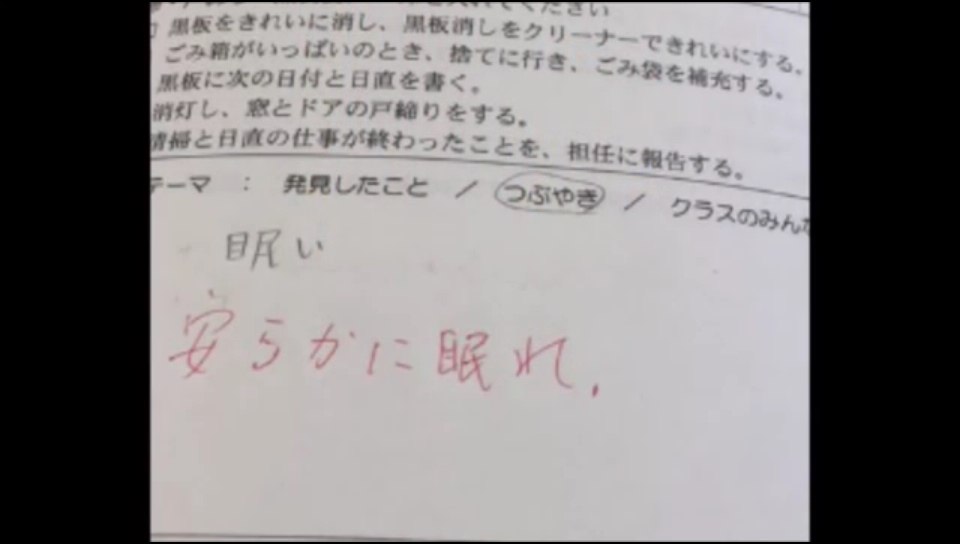 黒板をきれいに消し、黒板消しをクリーナーできれいにする。
ごみ箱がいっぱいのとき、捨てに行き、ごみ袋を補充する。
黒板に次の日付と日直を書く。
消灯し、窓とドアの戸締りをする。
清掃と日直の仕事が終わったことを、担任に報告する。
テーマ : 発見したこと / つぶやき / クラスのみんな
眠い
安らかに眠れ.